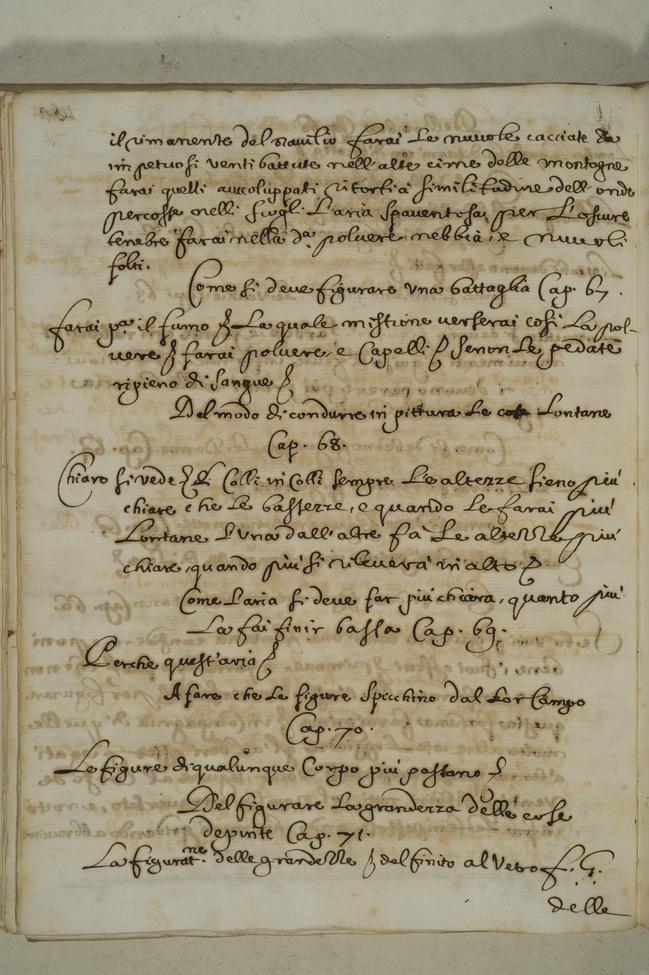 il rimanente del navilio farai le nuvole cacciate da
impetuosi venti battute nell'alte cime delle montagne
farai quelli avviluppati ritorti à similitudine dell'onde
percosse nelli scogli. L'aria spaventosa, per l'oscure
tenebre farai nella da polvere nebbia, e nuvoli
folti.
Come si deve figurare una battaglia Cap. 67.
farai pa. il fumo La quale mistione verserai così la pol-
vere farai polvere, e Capelli senon le pedate
ripieno di sangue
Del modo di condurre in pittura le cose Lontane
Cap. 68.
Chiaro si vede di Colli in Colli sempre le altezze sieno più
chiare che le bassezze, e quando le farai più
Lontane l'una dall'altre fà le altezze più
chiare, quando più si rileverà in alto
Come l'aria si deve far più chiara, quanto più
La fai finir bassa Cap. 69.
Perche quest'aria
A fare che le figure spicchino dal lor Campo
Cap. 70.
Le figure di qualunque Corpo più possano
Del figurare la grandezza delle cose
depinte Cap. 71.
La figuratne. delle grandezze del finito al Vero f. G.
delle